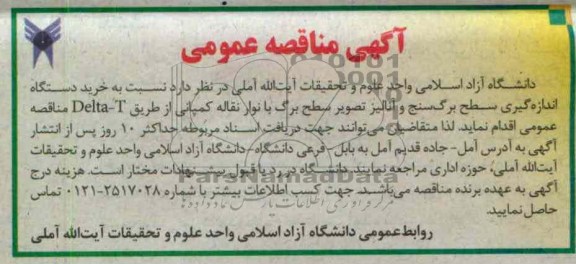 آگهی مناقصه عمومی
دانشگاه آزاد اسلامی واحد علوم و تحقیقات آیت‌الله آملی در نظر دارد نسبت به خرید دستگاه
اندازه‌گیری سطح برگ‌سنج و آنالیز تصویر سطح برگ با نوار نقاله کمپانی از طریق Delta-T مناقصه
عمومی اقدام نماید. لذا متقاضیان می‌توانند جهت دریافت اسناد مربوطه حداکثر ۱۰ روز پس از انتشار
آگهی به آدرس آمل- جاده قدیم آمل به بابل- فرعی دانشگاه- دانشگاه آزاد اسلامی واحد علوم و تحقیقات
آیت‌الله آملی، حوزه اداری مراجعه نمایند. دانشگاه در رد یا قبول پیشنهادات مختار است. هزینه درج
آگهی به عهده برنده مناقصه می‌باشد. جهت کسب اطلاعات بیشتر با شماره ۲۵۱۷۰۲۸-۰۱۲۱ تماس
حاصل نمایید.
روابط عمومی دانشگاه آزاد اسلامی واحد علوم و تحقیقات آیت‌الله آملی